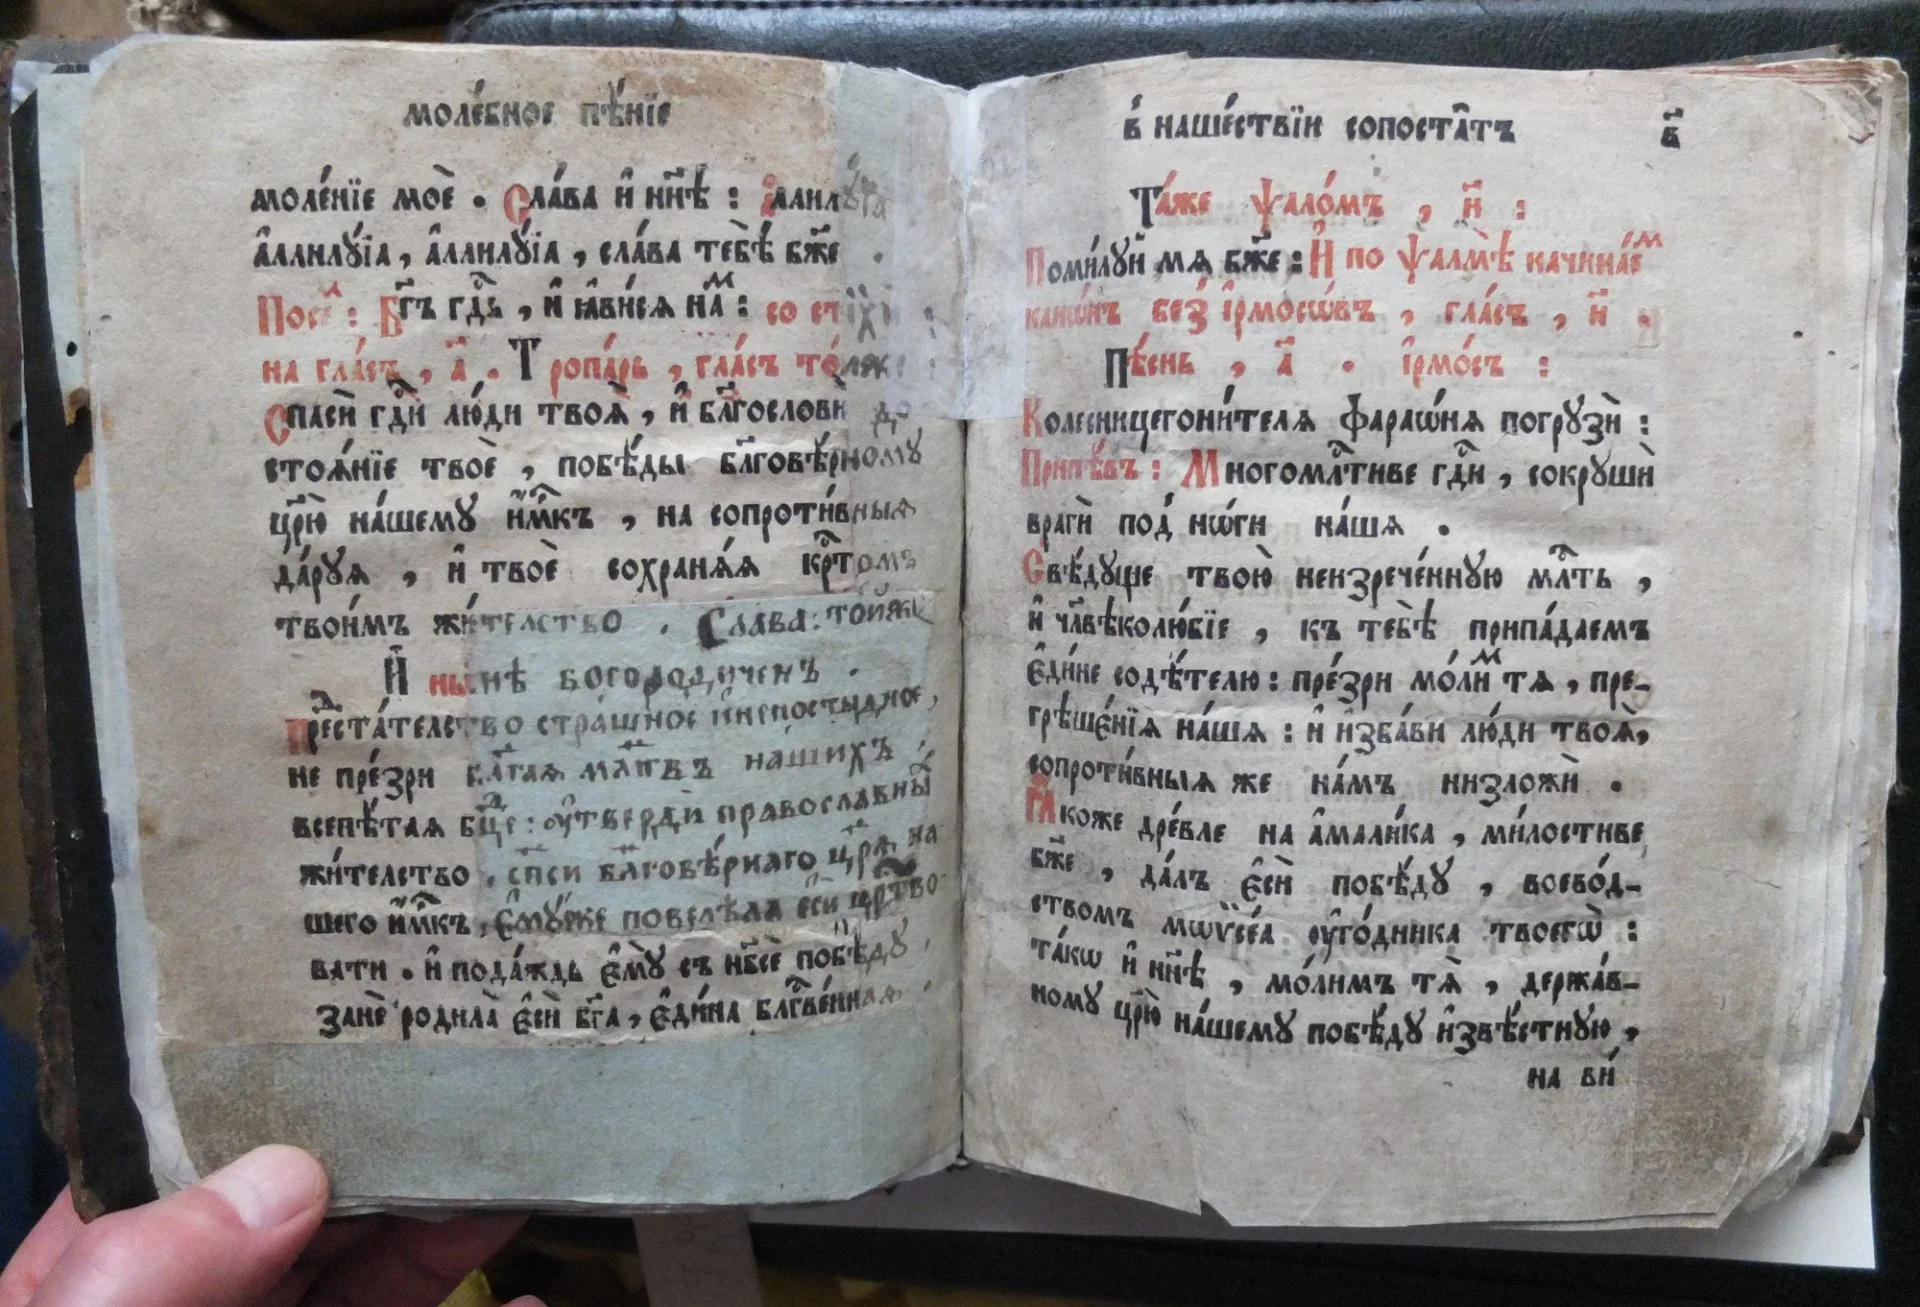 моле́бное пѣ́нїе
моле́нїе моѐ . Сла́ва и҆ нн҃ѣ : а҆ллилꙋ́їа
а҆ллилꙋ́їа, а҆ллилꙋ́їа, сла́ва тебѣ̀ бж҃е .
Посе́м : Бг҃ъ гд҇ь, и҆ ꙗ҆ви́сѧ на́м : со стїхи̑ :
на гла́съ, а҃ . Тропа́рь, гла́съ то́йже :
Спасѝ гд҇и лю́ди твоѧ̑, и҆ блг҇ословѝ до
стоѧ́нїе твоѐ, побѣ́ды блг҇овѣ́рномꙋ
цр҃ю̀ на́шемꙋ и҆́м҇къ, на сопроти́вныѧ
да́рꙋѧ, и҆ твоѐ сохранѧ́ѧ кр҇то́мъ
твои́мъ жи́телство . Сла́ва : то́йже
И҆ ны́нѣ богородиченъ .
Предста́телство стра́шное и҆ непостыдное,
не пре́зри бл҃га́ѧ мл҃твъ нашихъ :
всепѣ́таѧ бц҃е : ᲂу҆тверди̇̀ православных
жи́телство, сп҃си бл҃говѣ́рнаго цр҃ѧ̀ на
шего и҆́м҇къ, є҆мꙋ́же повелѣ́ла єси̇̀ цр҇тво
вати . и҆ пода́ждь є҆мꙋ̀ съ нб҃сѐ побѣ́дꙋ,
занѐ родила̀ є҆сѝ бг҃а, є҆ди́на блг҇ве́ннаѧ .
в̾ наше́ствїи сопоста̑тъ
в҃
Та́же ѱало́мъ, н҃ :
Поми́лꙋй мѧ бж҃е : И҆ по ѱалмѣ̀ начина́ем
канѡ́нъ без̾ і҆рмосѡ́въ, гла́съ, и҃ .
Пѣ́снь, а҃ . і҆рмо́съ :
Колесницегони́телѧ фараѡ́нѧ погрꙋзѝ :
Припѣ́въ : Многомл҇тиве гд҇и, сокрꙋшѝ
врагѝ под̾ но́ги на́шѧ .
Свѣ́дꙋще твою̀ неизрече́ннꙋю мл҇ть,
и҆ чл҃вѣколю́бїе, къ тебѣ̀ припа́даемъ
є҆ди́не содѣ́телю : пре́зри мо́лим тѧ, пре-
грѣше́нїѧ на́шѧ : и҆ и҆зба́ви лю́ди твоѧ̑,
сопроти́вныѧ же на́мъ низложѝ .
Ꙗ҆коже дре́вле на а҆мали́ка, ми́лостиве
бж҃е, да́лъ є҆сѝ побѣ́дꙋ, воево́д-
ствомъ мѡѷсе́а ᲂу҆го́дника твоегѡ̀ :
та́кѡ и҆ нн҃ѣ, мо́лимъ тѧ̀, держа́в-
номꙋ цр҃ю̀ на́шемꙋ побѣ́дꙋ и҆звѣ́стнꙋю,
на ви́